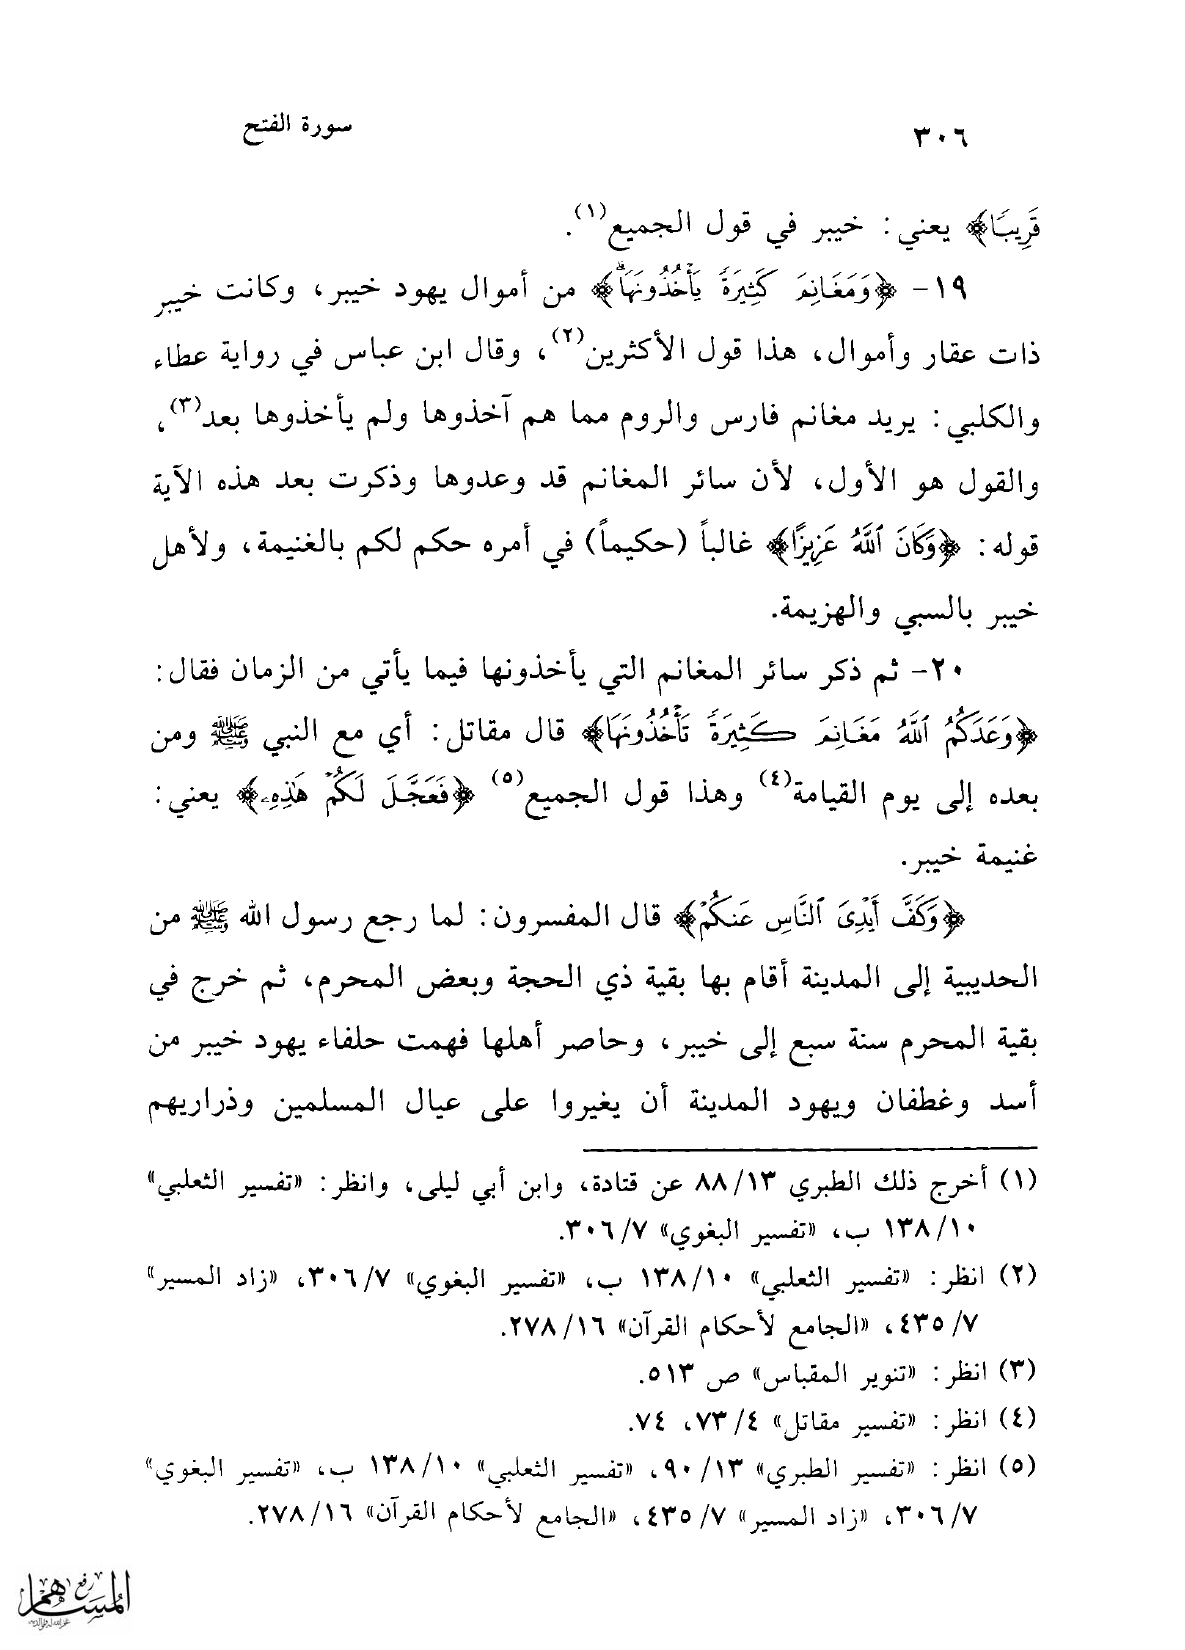 ٣٠٦
سورة الفتح
قَرِيبًا﴾ يعني: خيبر في قول الجميع(١).
١٩- ﴿وَمَغَانِمَ كَثِيرَةً يَأْخُذُونَهَا ۗ﴾ من أموال يهود خيبر، وكانت خيبر
ذات عقار وأموال، هذا قول الأكثرين(٢)، وقال ابن عباس في رواية عطاء
والكلبي: يريد مغانم فارس والروم مما هم آخذوها ولم يأخذوها بعد(٣)،
والقول هو الأول، لأن سائر المغانم قد وعدوها وذكرت بعد هذه الآية
قوله: ﴿وَكَانَ ٱللَّهُ عَزِيزًا﴾ غالباً (حكيماً) في أمره حكم لكم بالغنيمة، ولأهل
خيبر بالسبي والهزيمة.
٢٠- ثم ذكر سائر المغانم التي يأخذونها فيما يأتي من الزمان فقال:
﴿وَعَدَكُمُ ٱللَّهُ مَغَانِمَ كَثِيرَةً تَأْخُذُونَهَا﴾ قال مقاتل: أي مع النبي ﷺ ومن
بعده إلى يوم القيامة(٤) وهذا قول الجميع(٥) ﴿فَعَجَّلَ لَكُمْ هَٰذِهِۦ﴾ يعني:
غنيمة خيبر.
﴿وَكَفَّ أَيْدِىَ ٱلنَّاسِ عَنكُمْ﴾ قال المفسرون: لما رجع رسول الله ﷺ من
الحديبية إلى المدينة أقام بها بقية ذي الحجة وبعض المحرم، ثم خرج في
بقية المحرم سنة سبع إلى خيبر، وحاصر أهلها فهمت حلفاء يهود خيبر من
أسد وغطفان ويهود المدينة أن يغيروا على عيال المسلمين وذراريهم
(١) أخرج ذلك الطبري ١٣/ ٨٨ عن قتادة، وابن أبي ليلى، وانظر: «تفسير الثعلبي»
١٠/ ١٣٨ ب، «تفسير البغوي» ٧/ ٣٠٦.
(٢) انظر: «تفسير الثعلبي» ١٠/ ١٣٨ ب، «تفسير البغوي» ٧/ ٣٠٦، «زاد المسير»
٧/ ٤٣٥، «الجامع لأحكام القرآن» ١٦/ ٢٧٨.
(٣) انظر: «تنوير المقباس» ص ٥١٣.
(٤) انظر: «تفسير مقاتل» ٤/ ٧٣، ٧٤.
(٥) انظر: «تفسير الطبري» ١٣/ ٩٠، «تفسير الثعلبي» ١٠/ ١٣٨ ب، «تفسير البغوي»
٧/ ٣٠٦، «زاد المسير» ٧/ ٤٣٥، «الجامع لأحكام القرآن» ١٦/ ٢٧٨.
رفع
المساهم